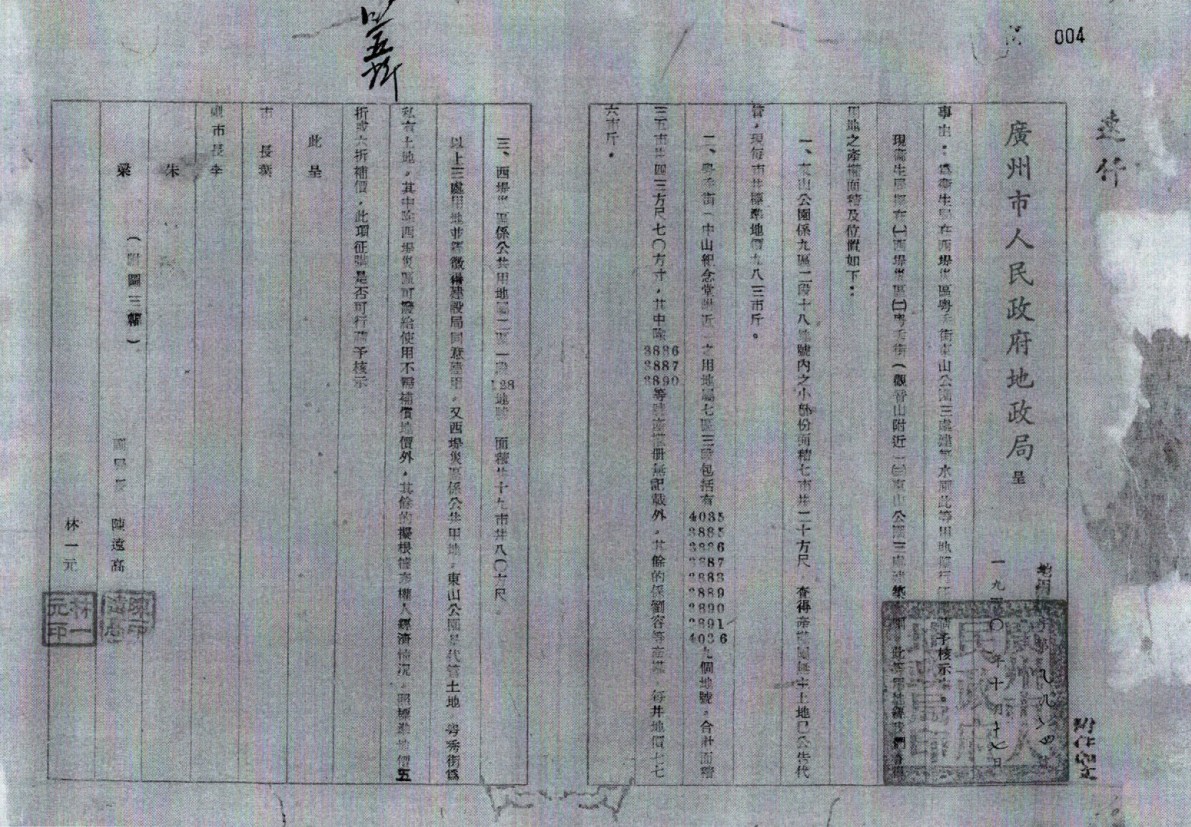 004
廣州市人民政府地政局 呈
一九五〇年十月十七日
事由：為衛生局在西堤災區粵秀街東山公園三處建築水厠此等用地
予核示
現衛生局在(一)西堤災區(二)粵秀街(觀音山附近)(三)東山公園三處建築
用地之產權面積及位置如下：
一、東山公園係九區二段十八地號內之小部份面積七市井二十方尺，查得產權屬無主土地已公告代
管，現每市井標準地價九八三市斤。
二、粵秀街(中山紀念堂附近)之用地屬七區三段包括有 4035 3885 3886 3887 3888 3889 3890 3891 4036 九個地號。合計面積
三五市井四三方尺七〇方寸，其中除 3886 3887 3890 等號產權冊無記載外，其餘的係劉容等產權，每井地價七七
六市斤。
三、西堤災區係公共用地屬二區一段 128 地號 面積 十九市井八〇方尺
以上三處用地並經徵得建設局同意建用，又西堤災區係公共用地，東山公園是代管土地，粵秀街為
私有土地，其中除西堤災區可撥給使用不需補償地價外，其餘的擬根據產權人經濟情况，照標準地價五
折或六折補償，此項征購是否可行請予核示
此呈
市長葉
副市長李
朱
梁
(附圖三幅)
副局長 陳遠高
林一元